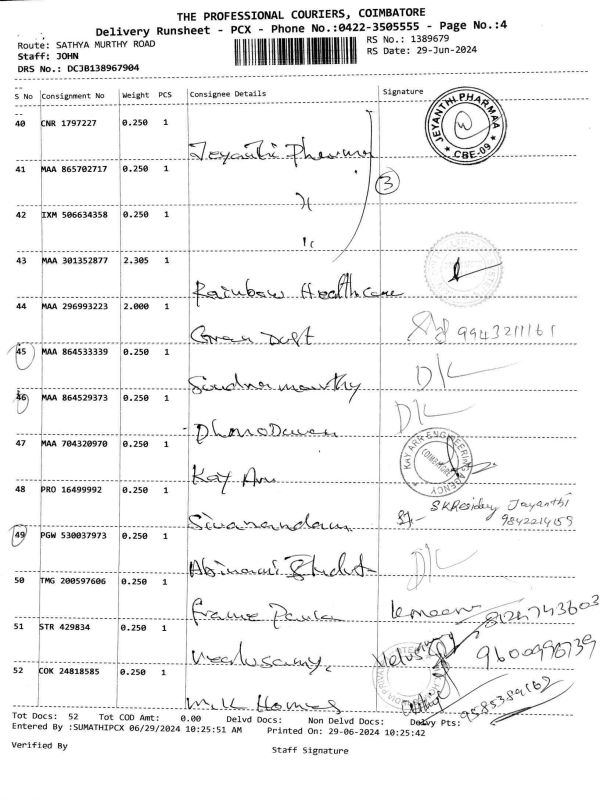 THE PROFESSIONAL COURIERS, COIMBATORE
Delivery Runsheet - PCX - Phone No.:0422-3505555 - Page No.:4
Route: SATHYA MURTHY ROAD RS No.: 1389679
Staff: JOHN RS Date: 29-Jun-2024
DRS No.: DCJB138967904
S No Consignment No Weight PCS Consignee Details Signature
40 CNR 1797227 0.250 1
Jeyanthi Pharma
JEYANTHI PHARMAA
* CBE-09 *
41 MAA 865702717 0.250 1
3
42 IXM 506634358 0.250 1
43 MAA 301352877 2.305 1
Rainbow Healthcare
44 MAA 296993223 2.000 1
9943211161
45 MAA 864533339 0.250 1
D/L
46 MAA 864529373 0.250 1
D/L
47 MAA 704320970 0.250 1
Kay Arr
KAY ARR ENGINEERING AGENCY
48 PRO 16499992 0.250 1
Sivanandam
SK Residency Jayanthi
9842214159
49 PGW 530037973 0.250 1
D/L
50 TMG 200597606 0.250 1
8124743603
51 STR 429834 0.250 1
Velusamy
9600998739
52 COK 24818585 0.250 1
Homes
9585389162
Tot Docs: 52 Tot COD Amt: 0.00 Delvd Docs: Non Delvd Docs: Delvy Pts:
Entered By :SUMATHIPCX 06/29/2024 10:25:51 AM Printed On: 29-06-2024 10:25:42
Verified By Staff Signature